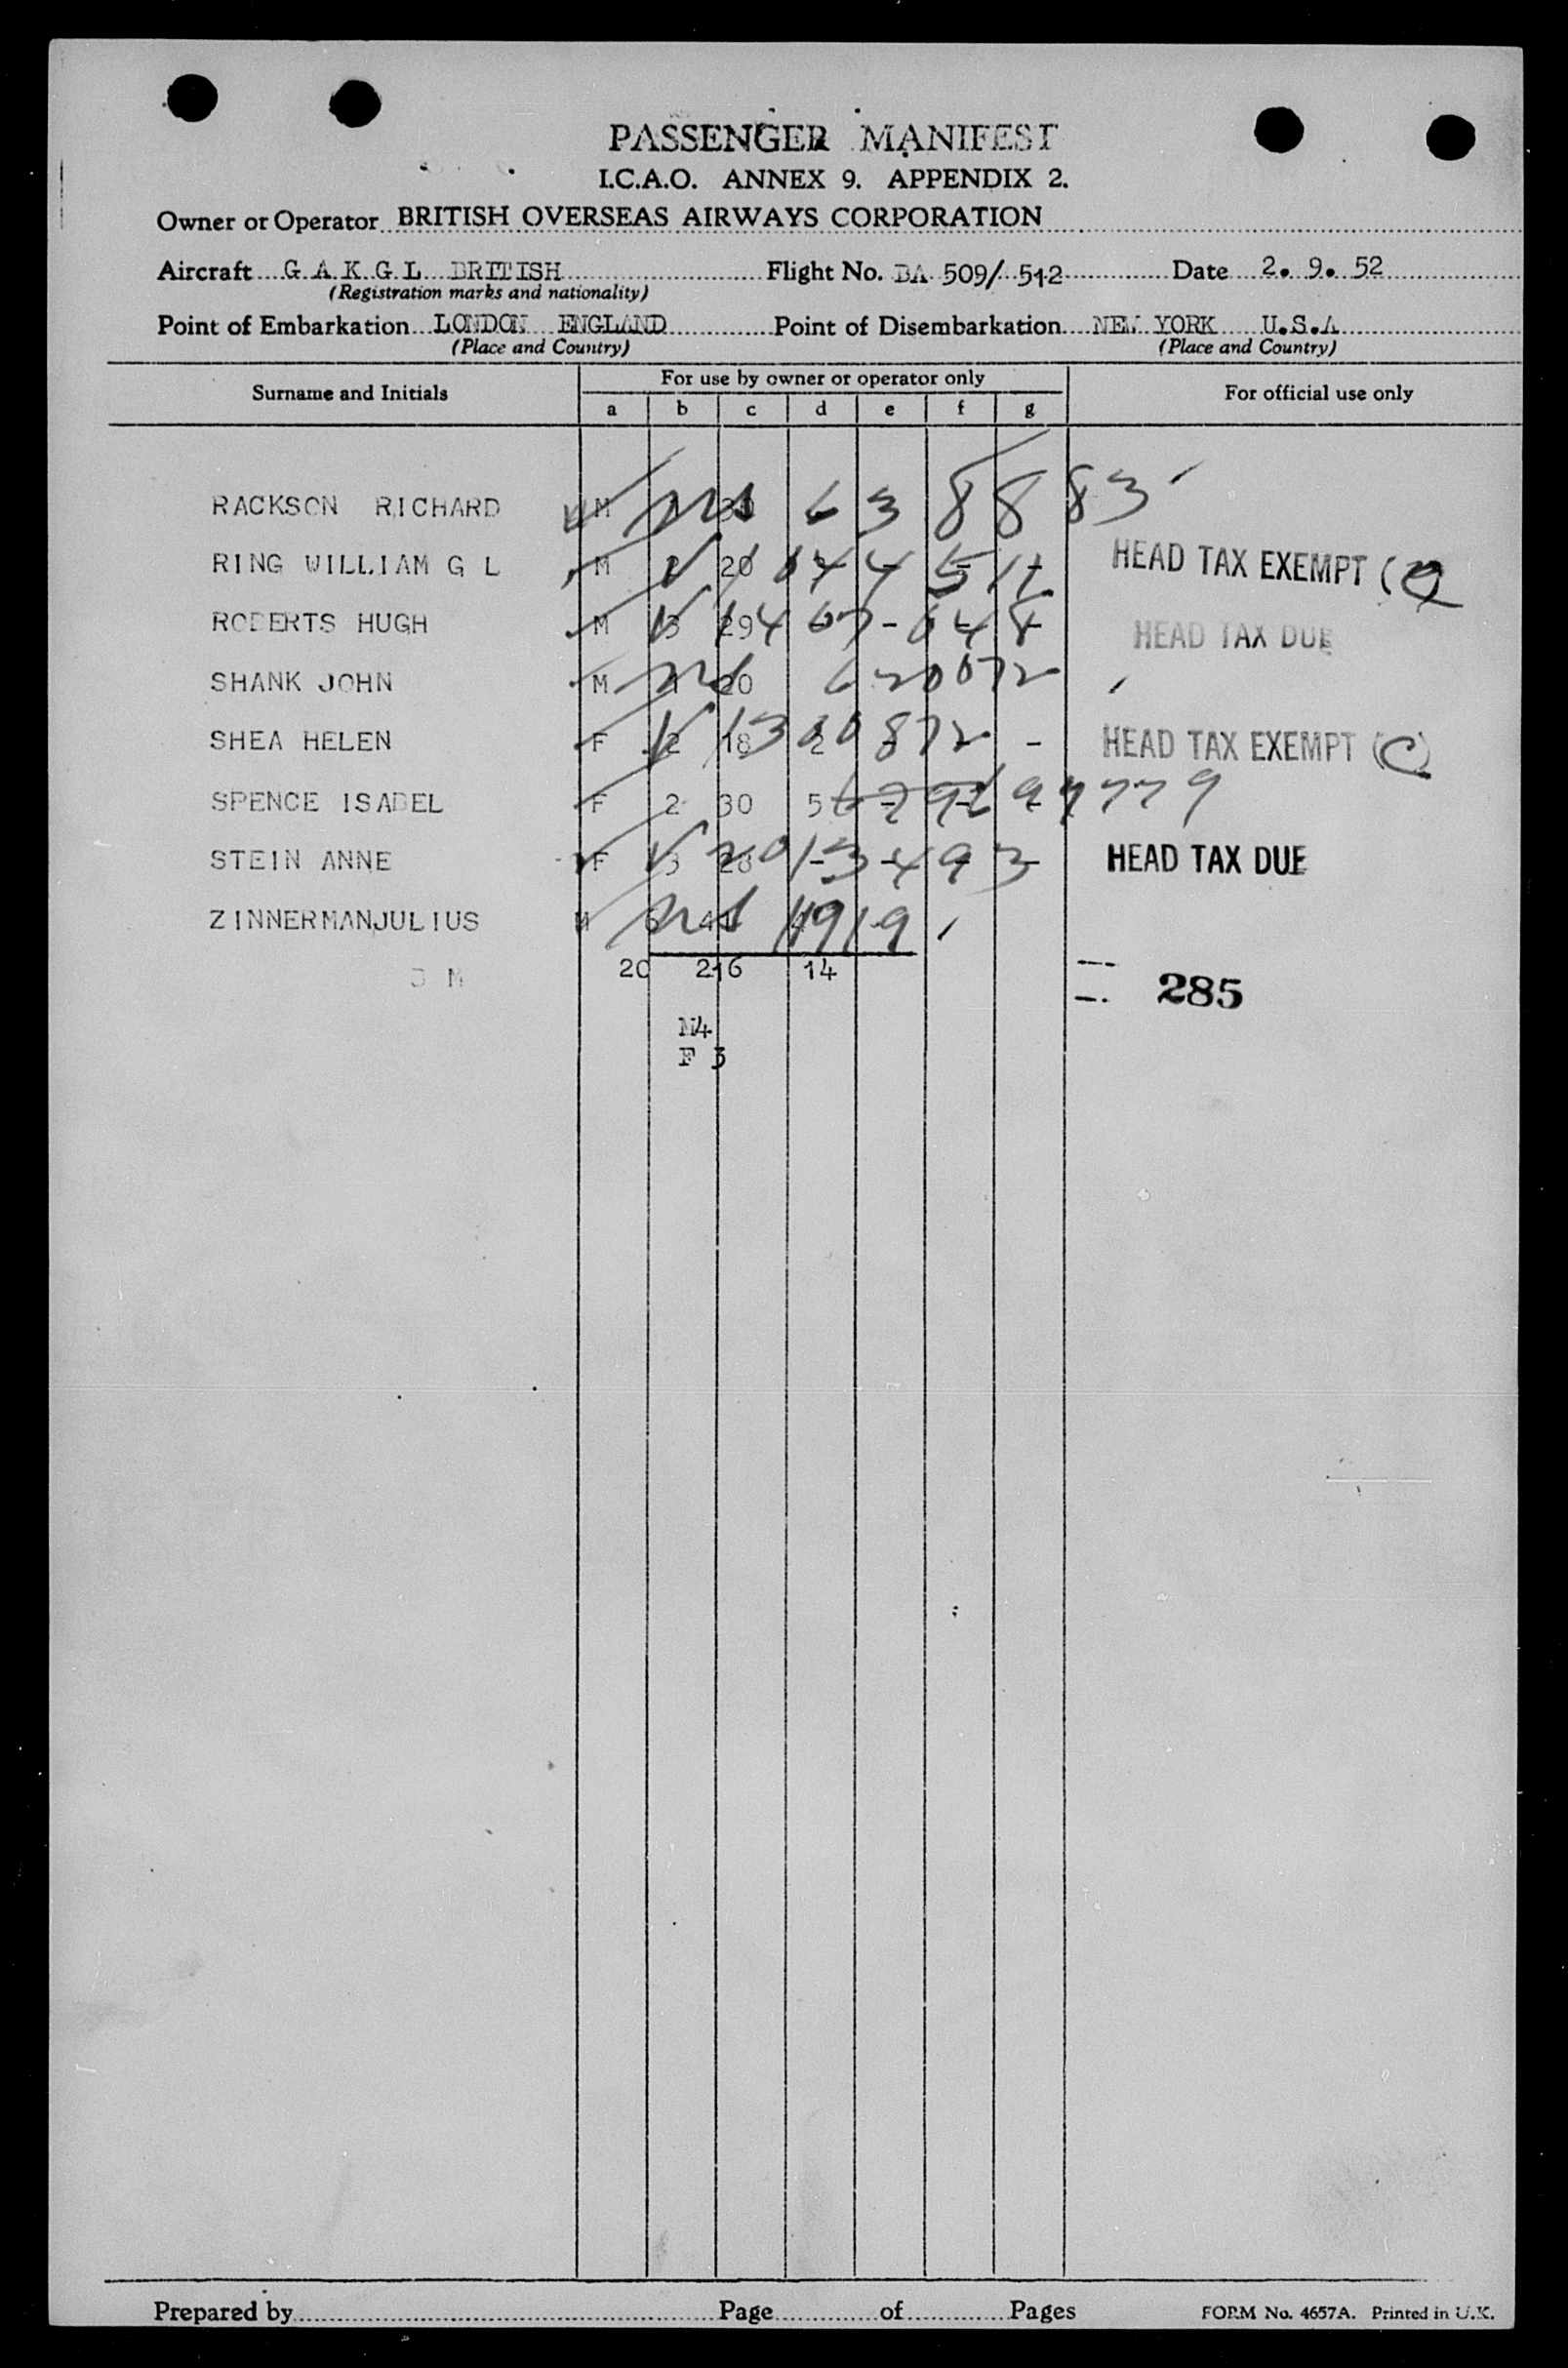 PASSENGER MANIFEST
I.C.A.O. ANNEX 9. APPENDIX 2.
Owner or Operator BRITISH OVERSEAS AIRWAYS CORPORATION
Aircraft G A K G L BRITISH Flight No. BA 509/ 512 Date 2. 9. 52
(Registration marks and nationality)
Point of Embarkation LONDON ENGLAND Point of Disembarkation NEW YORK U.S.A
(Place and Country) (Place and Country)
Surname and Initials For use by owner or operator only For official use only
a b c d e f g
RACKSON RICHARD M 638883
RING WILLIAM G L M 20 HEAD TAX EXEMPT (C)
ROBERTS HUGH M 3 29 HEAD TAX DUE
SHANK JOHN M 20 620072
SHEA HELEN F 2 18 2 - HEAD TAX EXEMPT (C)
SPENCE ISABEL F 2 30 5
STEIN ANNE F 3 28 HEAD TAX DUE
ZINNERMANJULIUS M
J M 20 216 14 285
M4
F 3
Prepared by Page of Pages FORM No. 4657A. Printed in U.K.